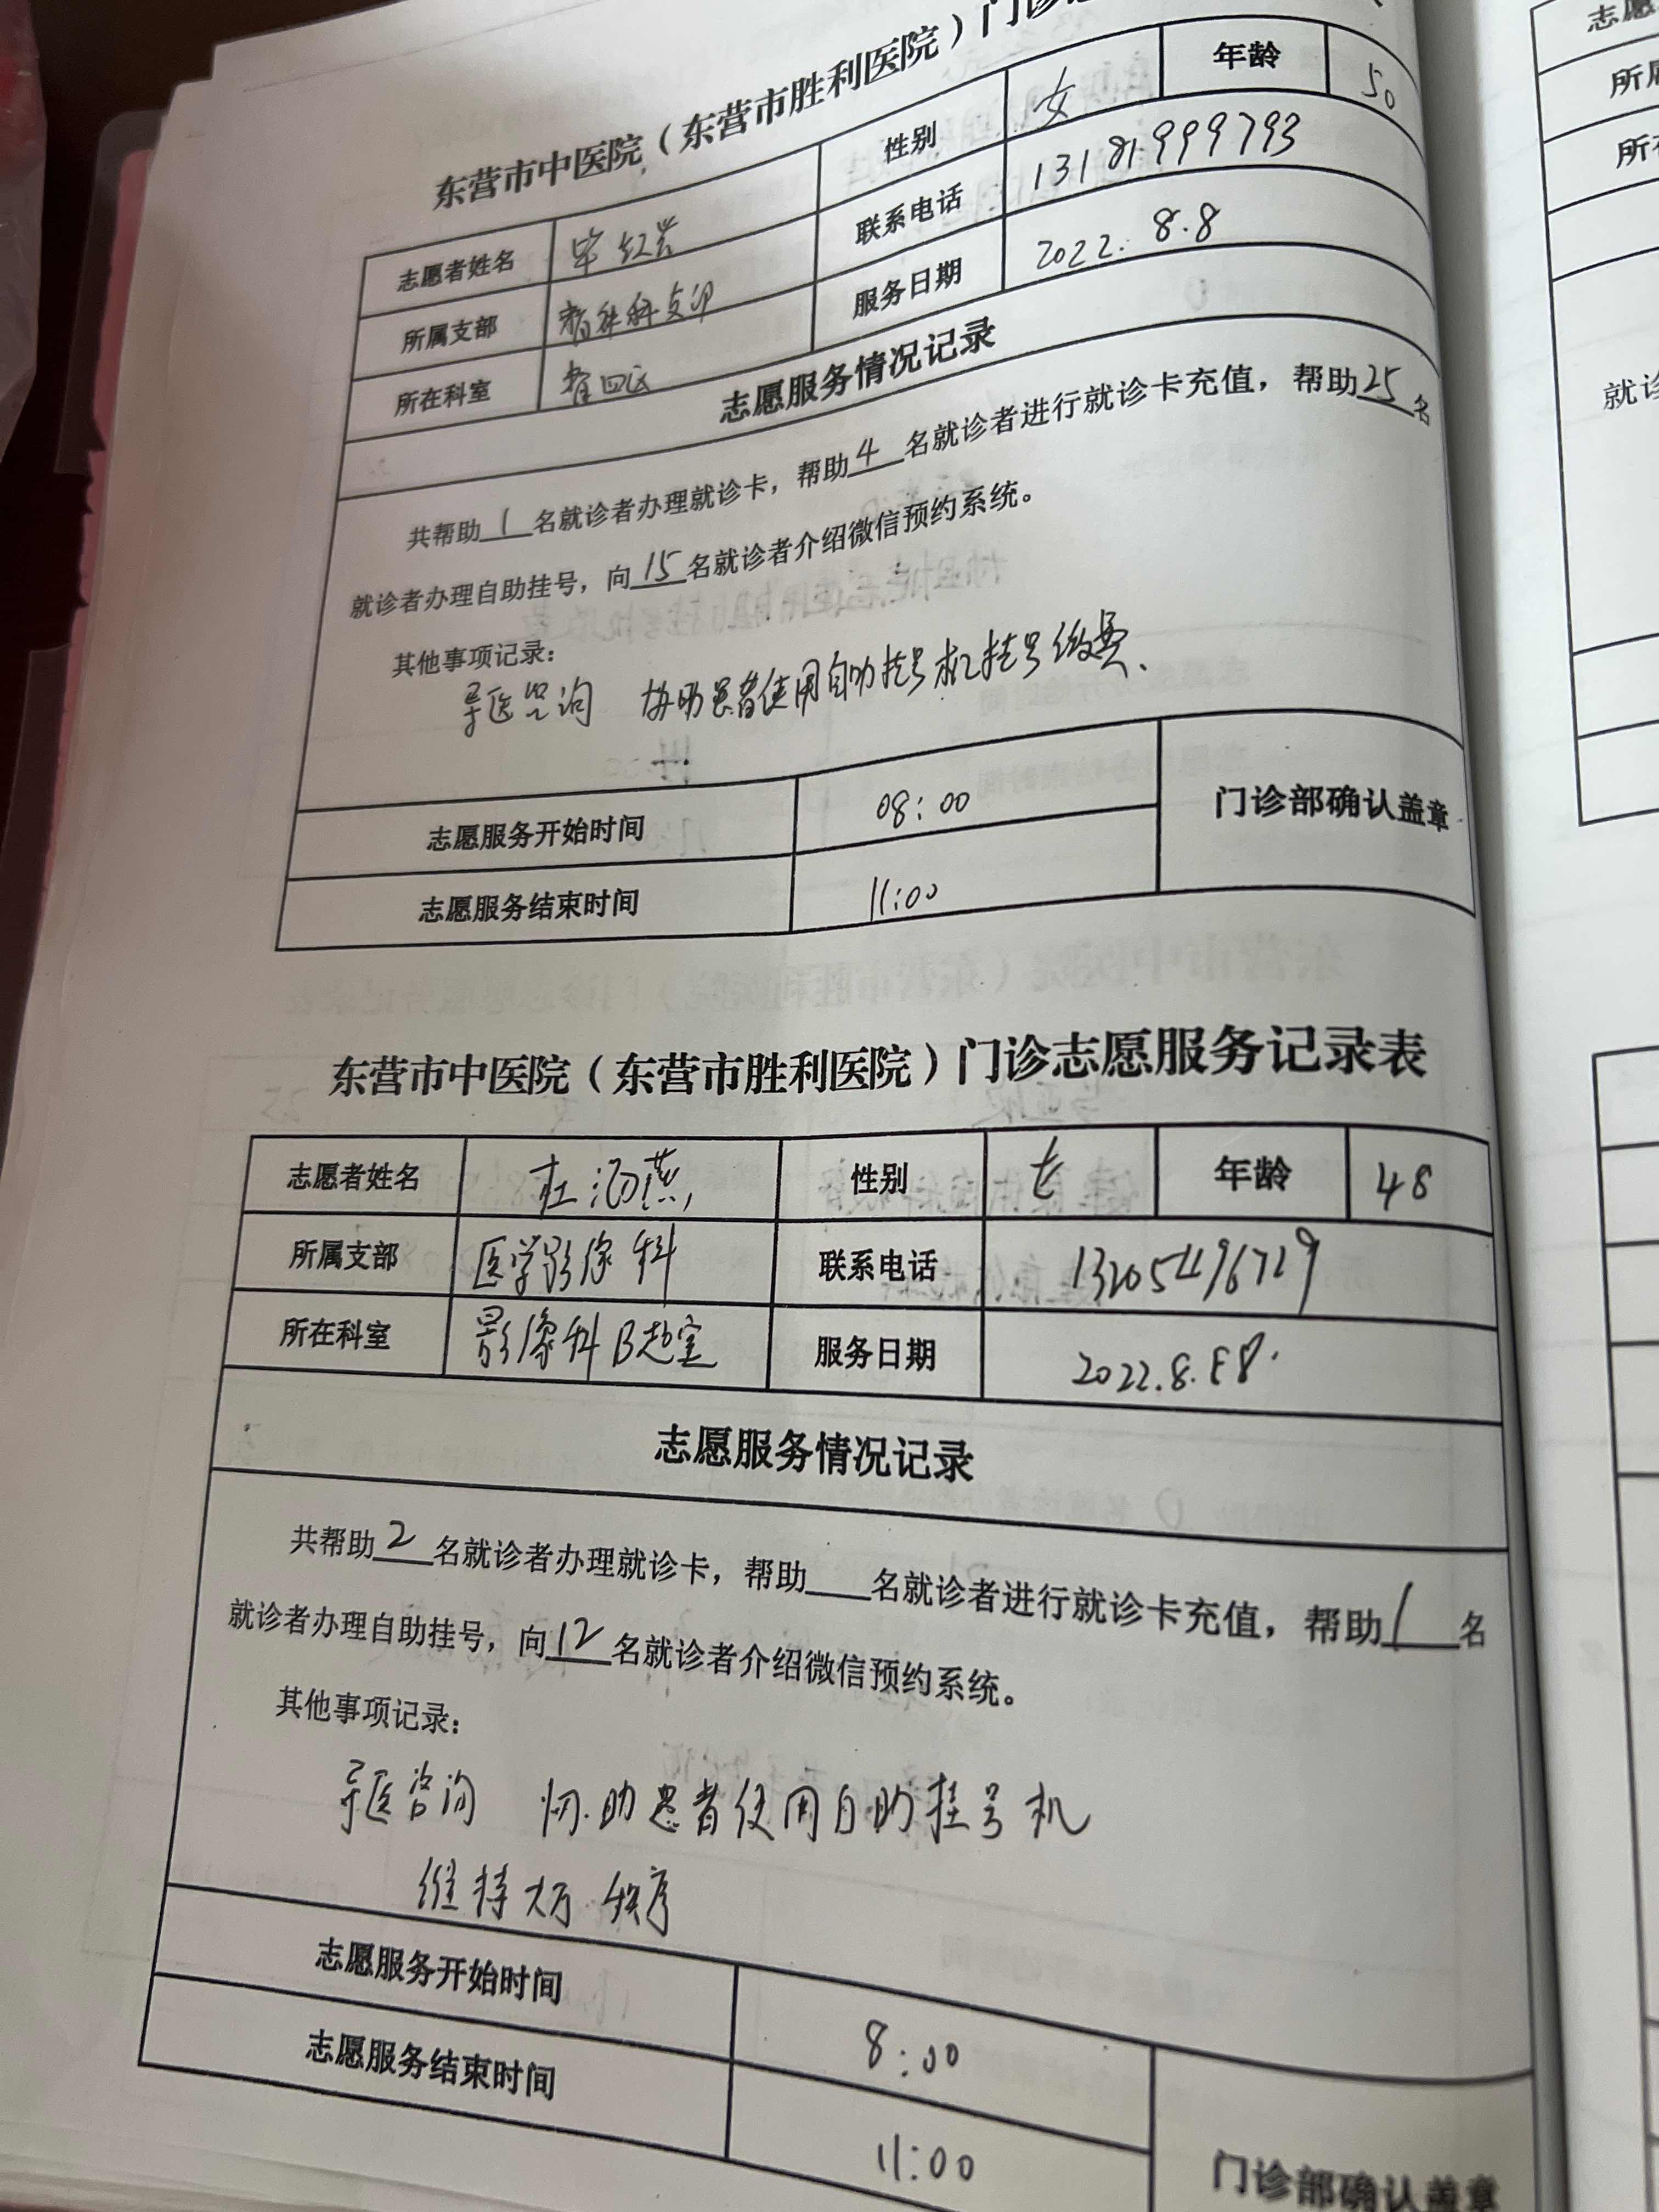 东营市中医院（东营市胜利医院）门诊志
志愿者姓名 毕红岩 性别 女 年龄 50
所属支部 联系电话 13181999793
所在科室 服务日期 2022.8.8
志愿服务情况记录
共帮助1名就诊者办理就诊卡，帮助4名就诊者进行就诊卡充值，帮助25名
就诊者办理自助挂号，向15名就诊者介绍微信预约系统。
其他事项记录：
导医咨询 协助患者使用自助挂号机挂号缴费、
志愿服务开始时间 08:00 门诊部确认盖章
志愿服务结束时间 11:00
东营市中医院（东营市胜利医院）门诊志愿服务记录表
志愿者姓名 杜 燕 性别 女 年龄 48
所属支部 医学影像科 联系电话 13205496729
所在科室 影像科B超室 服务日期 2022.8.8.
志愿服务情况记录
共帮助2名就诊者办理就诊卡，帮助___名就诊者进行就诊卡充值，帮助1名
就诊者办理自助挂号，向12名就诊者介绍微信预约系统。
其他事项记录：
导医咨询 协助患者使用自助挂号机
维持大厅秩序
志愿服务开始时间 8:00 门诊部确认盖章
志愿服务结束时间 11:00
志愿
所属
所在
就诊